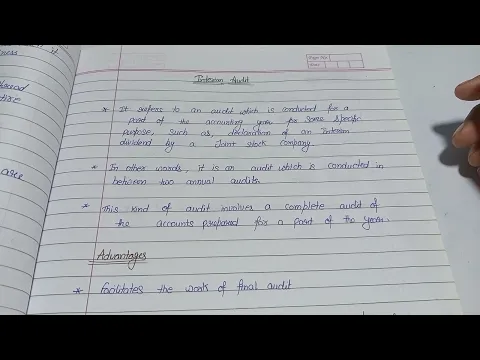 Interim Audit
* It refers to an audit which is conducted for a
part of the accounting year for some specific
purpose, such as, declaration of an Interim
dividend by a Joint stock company.
* In other words, it is an audit which is conducted in
between two annual audits.
* This kind of audit involves a complete audit of
the accounts prepared for a part of the year.
Advantages
* Facilitates the work of final audit